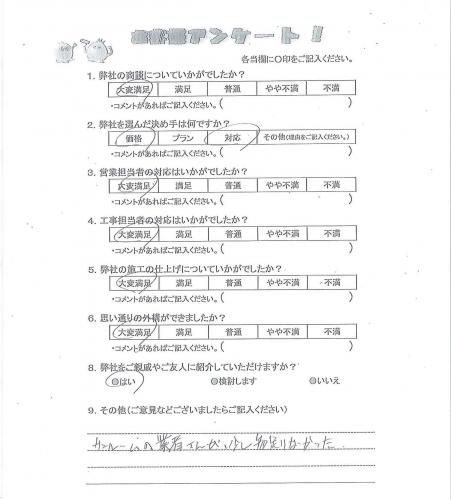 お客様アンケート!
各当欄に〇印をご記入ください。
1. 弊社の商談についていかがでしたか?
大変満足 満足 普通 やや不満 不満
・コメントがあればご記入ください。(
2. 弊社を選んだ決め手は何ですか?
価格 プラン 対応 その他(理由をご記入ください。)
・コメントがあればご記入ください。(
3. 営業担当者の対応はいかがでしたか?
大変満足 満足 普通 やや不満 不満
・コメントがあればご記入ください。(
4. 工事担当者の対応はいかがでしたか?
大変満足 満足 普通 やや不満 不満
・コメントがあればご記入ください。(
5. 弊社の施工の仕上げについていかがでしたか?
大変満足 満足 普通 やや不満 不満
・コメントがあればご記入ください。(
6. 思い通りの外構ができましたか?
大変満足 満足 普通 やや不満 不満
・コメントがあればご記入ください。(
8. 弊社をご親戚やご友人に紹介していただけますか?
◎はい ◎検討します ◎いいえ
9. その他(ご意見などございましたらご記入ください)
の業者さんが 少し 物足りなかった.